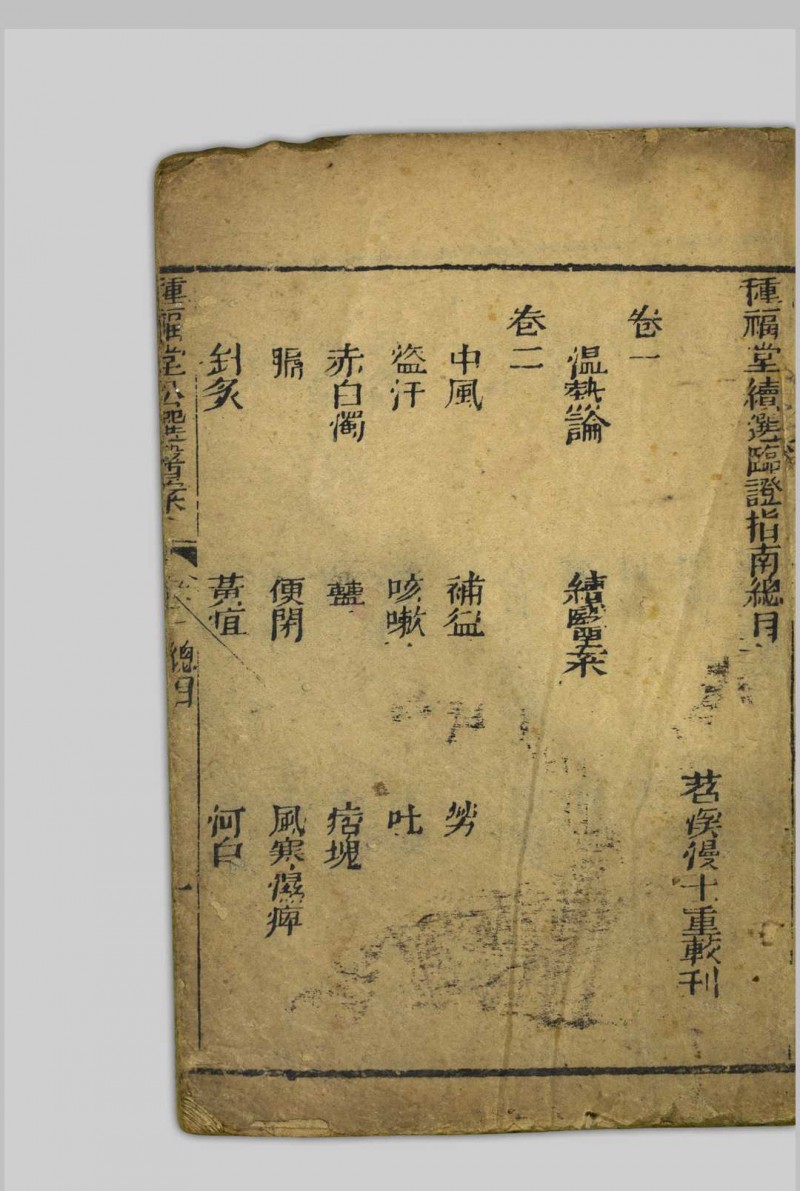 種福堂續選臨證指南總目
苕溪漫士重較刊
卷一
温熱論 續醫案
卷二
中風 補益 勞
盗汗 咳嗽 吐
赤白濁 蠱 痞塊
脹 便閉 風寒濕痺
針灸 黃疸 阿白
種福堂公選醫案 總目 一